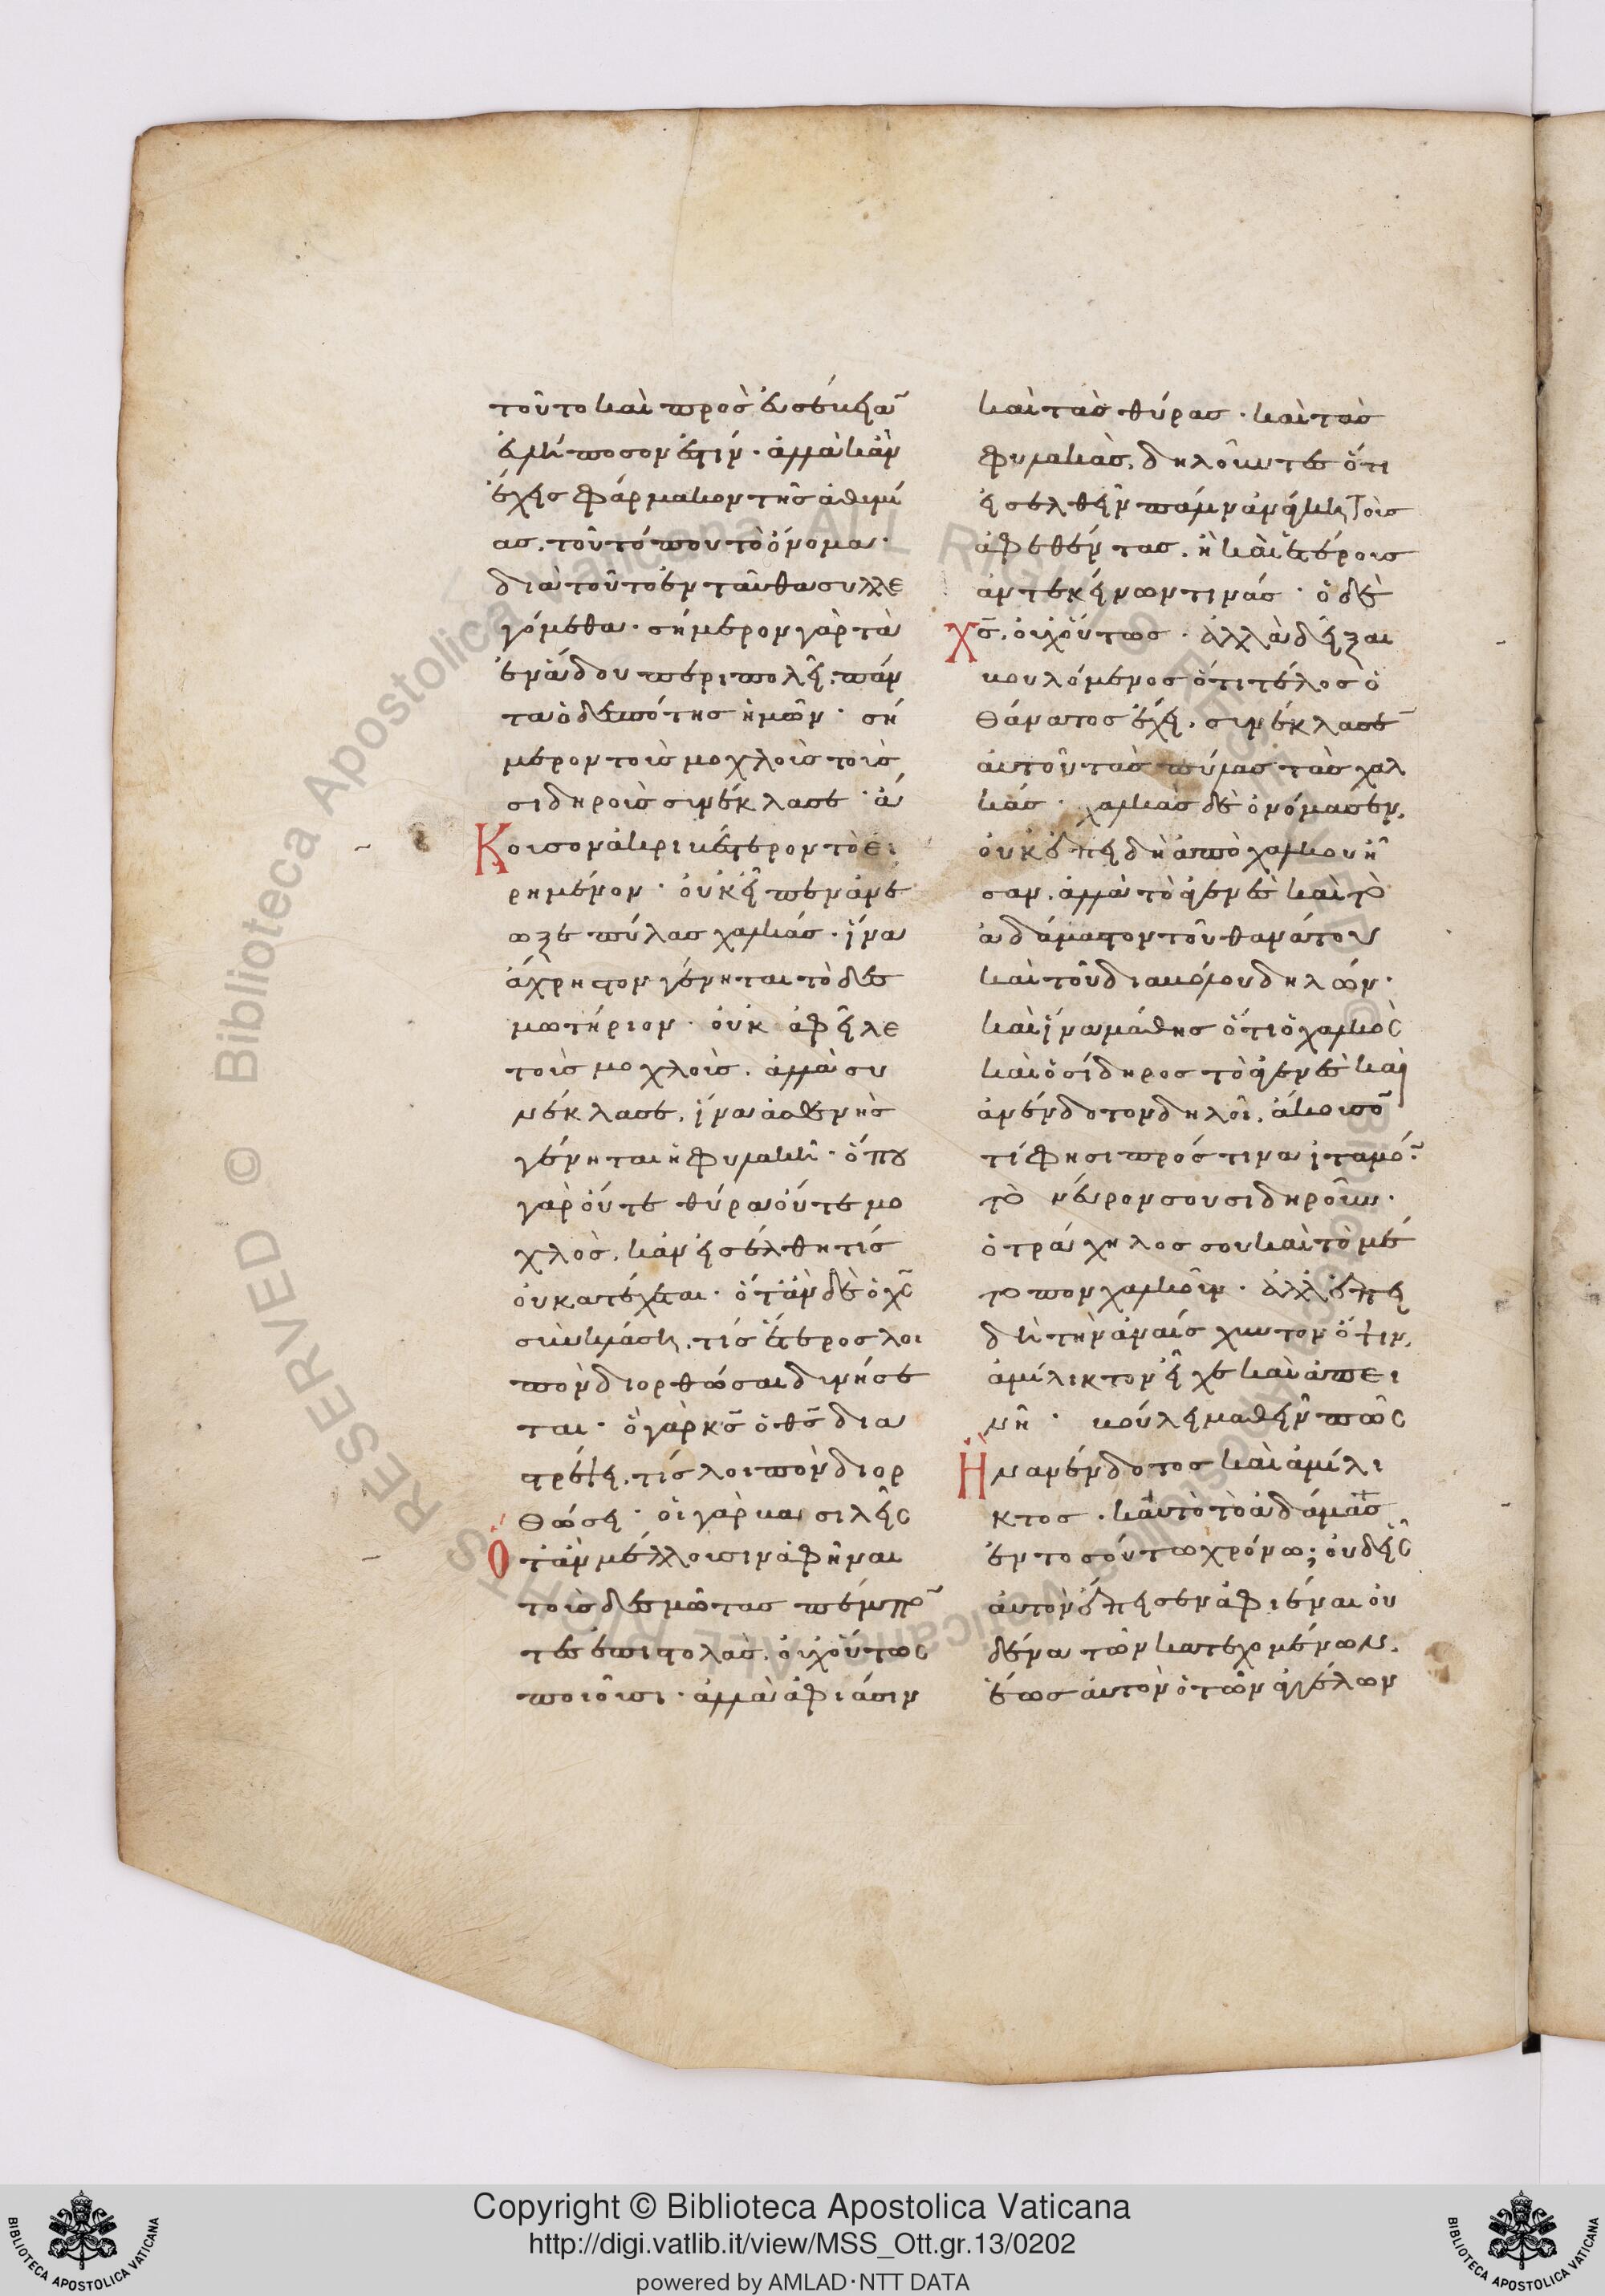 τοῦτο καὶ πρὸς εὐσέβειαν
ἐμποσον ἐστίν· ἀλλὰ κἂν
ἔχεις φάρμακον τῆς ἀθυμί
ας, τοῦ τόπου τὸ ὄνομα·
διὰ τοῦτο ἐνταῦθα συλλε
γόμεθα· σήμερον γὰρ τὰ
ἐν ἅδου περιπολεῖ πάν
τα ὁ δεσπότης ἡμῶν· σή
μερον τοὺς μοχλοὺς τοὺς
σιδηροῦς συνέκλασε· ἄ
κουσον ἀκριβέστερον τὸ εἰ
ρημένον· οὐκ εἶπεν ἀνέ
ωξε πύλας χαλκάς· ἵνα
ἄχρηστον γένηται τὸ δεσ
μωτήριον· οὐκ ἀφεῖλε
τοὺς μοχλούς, ἀλλὰ συ
νέκλασε, ἵνα ἀσθενὴς
γένηται ἡ φυλακή· ὅπου
γὰρ οὔτε θύρα οὔτε μο
χλὸς, κἂν εἰσέλθῃ τίς
οὐ κατέχεται· ὅταν δὲ ὁ χς
συγκλάσῃ, τίς ἕτερος λοι
πὸν διορθῶσαι δυνήσε
ται· ὁ γὰρ κς ὁ θς δια
στρέψει, τίς λοιπὸν διορ
θώσει· οἱ γὰρ βασιλεῖς
ὅταν μέλλουσιν ἀφῆναι
τοὺς δεσμώτας πέμπον
τες ἐπιστολὰς, οὐχ οὕτως
ποιοῦσι· ἀλλὰ ἀφιᾶσιν
καὶ τὰς θύρας· καὶ τὰς
φυλακὰς, δηλοῦντες ὅτι
εἰσελθεῖν πάλιν ἀνάγκη τοὺς
ἀφεθέντας, ἢ καὶ ἑτέρους
ἀντ' ἐκείνων τινάς· ὁ δὲ
Χς, οὐχ οὕτως· ἀλλὰ δεῖξαι
βουλόμενος ὅτι τέλος ὁ
θάνατος ἔχει, συνέκλασεν
αὐτοῦ τὰς πύλας τὰς χαλ
κάς· χαλκὰς δὲ ὀνόμασεν,
οὐκ ἐπειδὴ ἀπὸ χαλκοῦ ἦ
σαν, ἀλλὰ τὸ ἀτενὲς καὶ τὸ
ἀδάμαστον τοῦ θανάτου
καὶ τοῦ διαβόλου δηλῶν·
καὶ ἵνα μάθης ὅτι ὁ χαλκὸς
καὶ ὁ σίδηρος τὸ ἀτενὲς καὶ
ἀνένδοτον δηλοῖ, ἄκουσον
τί φησι πρός τινα ἰταμόν·
τὸ νεῦρον σου σιδηροῦν·
ὁ τράχηλος σου καὶ τὸ μέ
τωπον χαλκοῦν· ἀλλ' ἐπει
δὴ τὴν ἀναίσχυντον ὄψιν,
ἀμίλικτον εἶχε καὶ ἀπει
νῆ· βούλει μαθεῖν πῶς
ἦν ἀνένδοτος καὶ ἀμίλι
κτος· κατὰ τὸ ἀδάμαστος
ἐν τοσούτω χρόνω; οὐδεὶς
αὐτὸν ἔπεισεν ἀφιέναι οὐ
δένα τῶν κατεχομένων,
ἕως αὐτὸν ὁ τῶν ἀγγέλων
Copyright © Biblioteca Apostolica Vaticana
http://digi.vatlib.it/view/MSS_Ott.gr.13/0202
powered by AMLAD·NTT DATA